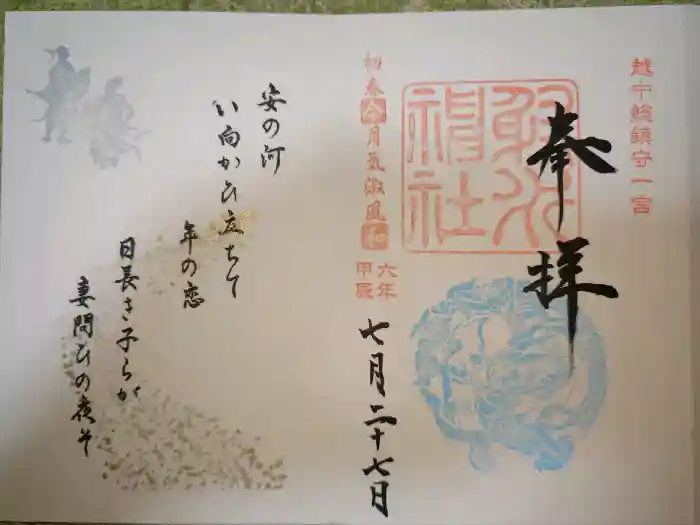 越中総鎮守一宮
奉拝
射水
神社
初春令月気淑風和
六年
甲辰
七月二十七日
安の河
い向かひ立ちて
年の恋
日長き子らが
妻問ひの夜そ